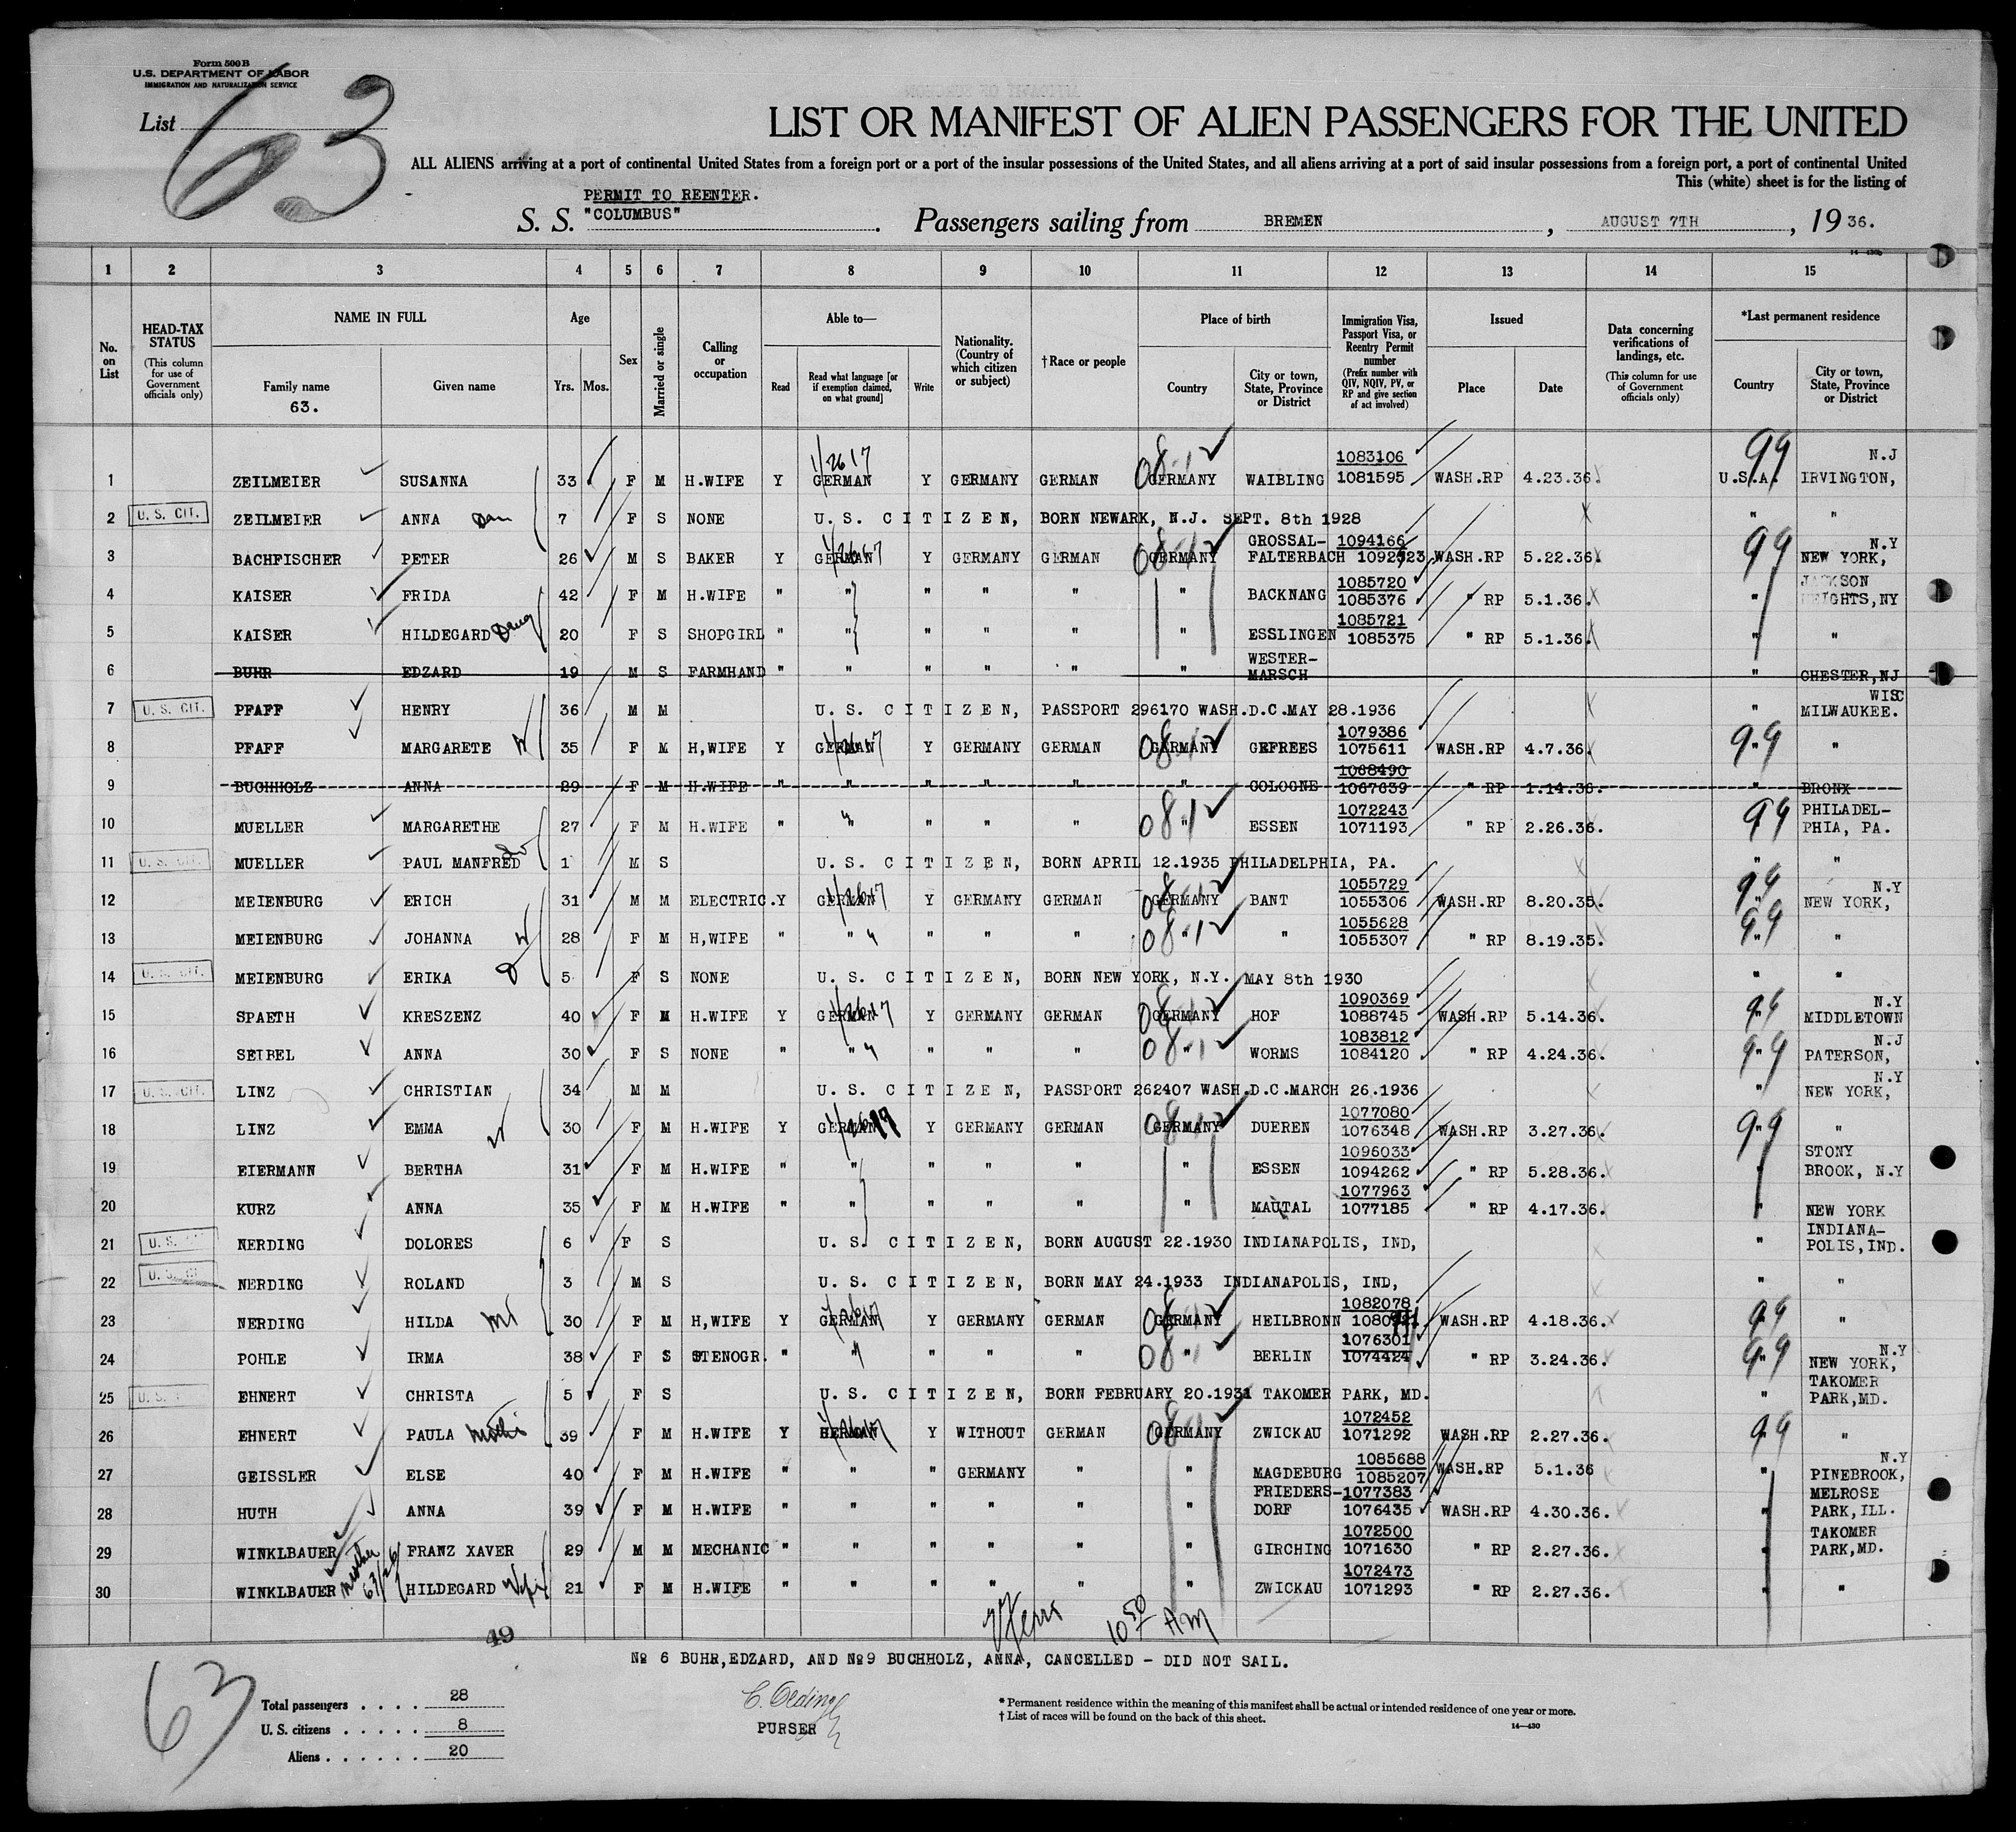 Form 500 B
U.S. DEPARTMENT OF LABOR
IMMIGRATION AND NATURALIZATION SERVICE
List 63
LIST OR MANIFEST OF ALIEN PASSENGERS FOR THE UNITED
ALL ALIENS arriving at a port of continental United States from a foreign port or a port of the insular possessions of the United States, and all aliens arriving at a port of said insular possessions from a foreign port, a port of continental United
This (white) sheet is for the listing of
PERMIT TO REENTER.
S. S. "COLUMBUS" . Passengers sailing from BREMEN , AUGUST 7TH , 19 36.
14—430b
1 2 3 4 5 6 7 8 9 10 11 12 13 14 15
No. on List
HEAD-TAX STATUS (This column for use of Government officials only)
NAME IN FULL
Family name Given name
63.
Age
Yrs. Mos.
Sex
Married or single
Calling or occupation
Able to—
Read
Read what language [or if exemption claimed, on what ground]
Write
Nationality. (Country of which citizen or subject)
† Race or people
Place of birth
Country
City or town, State, Province or District
Immigration Visa, Passport Visa, or Reentry Permit number (Prefix number with QIV, NQIV, PV, or RP and give section of act involved)
Issued
Place Date
Data concerning verifications of landings, etc. (This column for use of Government officials only)
*Last permanent residence
Country
City or town, State, Province or District
1 ZEILMEIER SUSANNA 33 F M H.WIFE Y GERMAN Y GERMANY GERMAN GERMANY WAIBLING 1083106 1081595 WASH.RP 4.23.36. U.S.A. N.J IRVINGTON,
2 U. S. CIT. ZEILMEIER ANNA 7 F S NONE U. S. CITIZEN, BORN NEWARK, N.J. SEPT. 8th 1928 " "
3 BACHFISCHER PETER 26 M S BAKER Y GERMAN Y GERMANY GERMAN GERMANY GROSSAL-FALTERBACH 1094166 WASH.RP 5.22.36. N.Y NEW YORK,
4 KAISER FRIDA 42 F M H.WIFE " " " " " " BACKNANG 1085720 1085376 " RP 5.1.36. " JACKSON HEIGHTS,NY
5 KAISER HILDEGARD Daug 20 F S SHOPGIRL " " " " " " ESSLINGEN 1085721 1085375 " RP 5.1.36. " "
6 BUHR EDZARD 19 M S FARMHAND " " " " " " WESTER-MARSCH " CHESTER,NJ
7 U. S. CIT. PFAFF HENRY 36 M M U. S. CITIZEN, PASSPORT 296170 WASH.D.C.MAY 28.1936 " WISC MILWAUKEE.
8 PFAFF MARGARETE W 35 F M H,WIFE Y GERMAN Y GERMANY GERMAN GERMANY GEFREES 1079386 1075611 WASH.RP 4.7.36. " "
9 BUCHHOLZ ANNA 29 F M H.WIFE " " " " " " COLOGNE 1068490 1067639 " RP 1.14.36. " BRONX
10 MUELLER MARGARETHE 27 F M H.WIFE " " " " " " ESSEN 1072243 1071193 " RP 2.26.36. PHILADEL-PHIA, PA.
11 U. S. CIT. MUELLER PAUL MANFRED 1 M S U. S. CITIZEN, BORN APRIL 12.1935 PHILADELPHIA, PA. " "
12 MEIENBURG ERICH 31 M M ELECTRIC. Y GERMAN Y GERMANY GERMAN GERMANY BANT 1055729 1055306 WASH.RP 8.20.35. " N.Y NEW YORK,
13 MEIENBURG JOHANNA W 28 F M H,WIFE " " " " " " " 1055628 1055307 " RP 8.19.35. " "
14 U. S. CIT. MEIENBURG ERIKA D 5 F S NONE U. S. CITIZEN, BORN NEW YORK, N.Y. MAY 8th 1930 " "
15 SPAETH KRESZENZ 40 F M H.WIFE Y GERMAN Y GERMANY GERMAN GERMANY HOF 1090369 1088745 WASH.RP 5.14.36. " N.Y MIDDLETOWN
16 SEIBEL ANNA 30 F S NONE " " " " " " WORMS 1083812 1084120 " RP 4.24.36. " N.J PATERSON,
17 U. S. CIT. LINZ CHRISTIAN 34 M M U. S. CITIZEN, PASSPORT 262407 WASH.D.C.MARCH 26.1936 " N.Y NEW YORK,
18 LINZ EMMA W 30 F M H.WIFE Y GERMAN Y GERMANY GERMAN GERMANY DUEREN 1077080 1076348 WASH.RP 3.27.36. " "
19 EIERMANN BERTHA 31 F M H.WIFE " " " " " " ESSEN 1096033 1094262 " RP 5.28.36. " STONY BROOK, N.Y
20 KURZ ANNA 35 F M H.WIFE " " " " " " MAUTAL 1077963 1077185 " RP 4.17.36. " NEW YORK
21 U. S. NERDING DOLORES 6 F S U. S. CITIZEN, BORN AUGUST 22.1930 INDIANAPOLIS, IND, " INDIANA-POLIS,IND.
22 U. S. NERDING ROLAND 3 M S U. S. CITIZEN, BORN MAY 24.1933 INDIANAPOLIS, IND, " "
23 NERDING HILDA 30 F M H,WIFE Y GERMAN Y GERMANY GERMAN GERMANY HEILBRONN 1082078 WASH.RP 4.18.36. " "
24 POHLE IRMA 38 F S STENOGR. " " " " " " BERLIN 1076301 1074424 " RP 3.24.36. " N.Y NEW YORK,
25 U. S. EHNERT CHRISTA 5 F S U. S. CITIZEN, BORN FEBRUARY 20.1931 TAKOMER PARK, MD. " TAKOMER PARK,MD.
26 EHNERT PAULA 39 F M H.WIFE Y GERMAN Y WITHOUT GERMAN GERMANY ZWICKAU 1072452 1071292 WASH.RP 2.27.36. " "
27 GEISSLER ELSE 40 F M H.WIFE " " " GERMANY " " MAGDEBURG 1085688 1085207 WASH.RP 5.1.36 " N.Y PINEBROOK,
28 HUTH ANNA 39 F M H.WIFE " " " " " " FRIEDERS-DORF 1077383 1076435 WASH.RP 4.30.36. " MELROSE PARK,ILL.
29 WINKLBAUER FRANZ XAVER 29 M M MECHANIC " " " " " " GIRCHING 1072500 1071630 " RP 2.27.36. " TAKOMER PARK,MD.
30 WINKLBAUER mother 63/26 HILDEGARD Wife 21 F M H.WIFE " " " " " " ZWICKAU 1072473 1071293 " RP 2.27.36. " "
10 50 AM
49
№ 6 BUHR,EDZARD, AND №9 BUCHHOLZ, ANNA, CANCELLED - DID NOT SAIL.
63
Total passengers . . . . 28
U. S. citizens . . . . . 8
Aliens . . . . . . 20
PURSER
* Permanent residence within the meaning of this manifest shall be actual or intended residence of one year or more.
† List of races will be found on the back of this sheet.
14—430